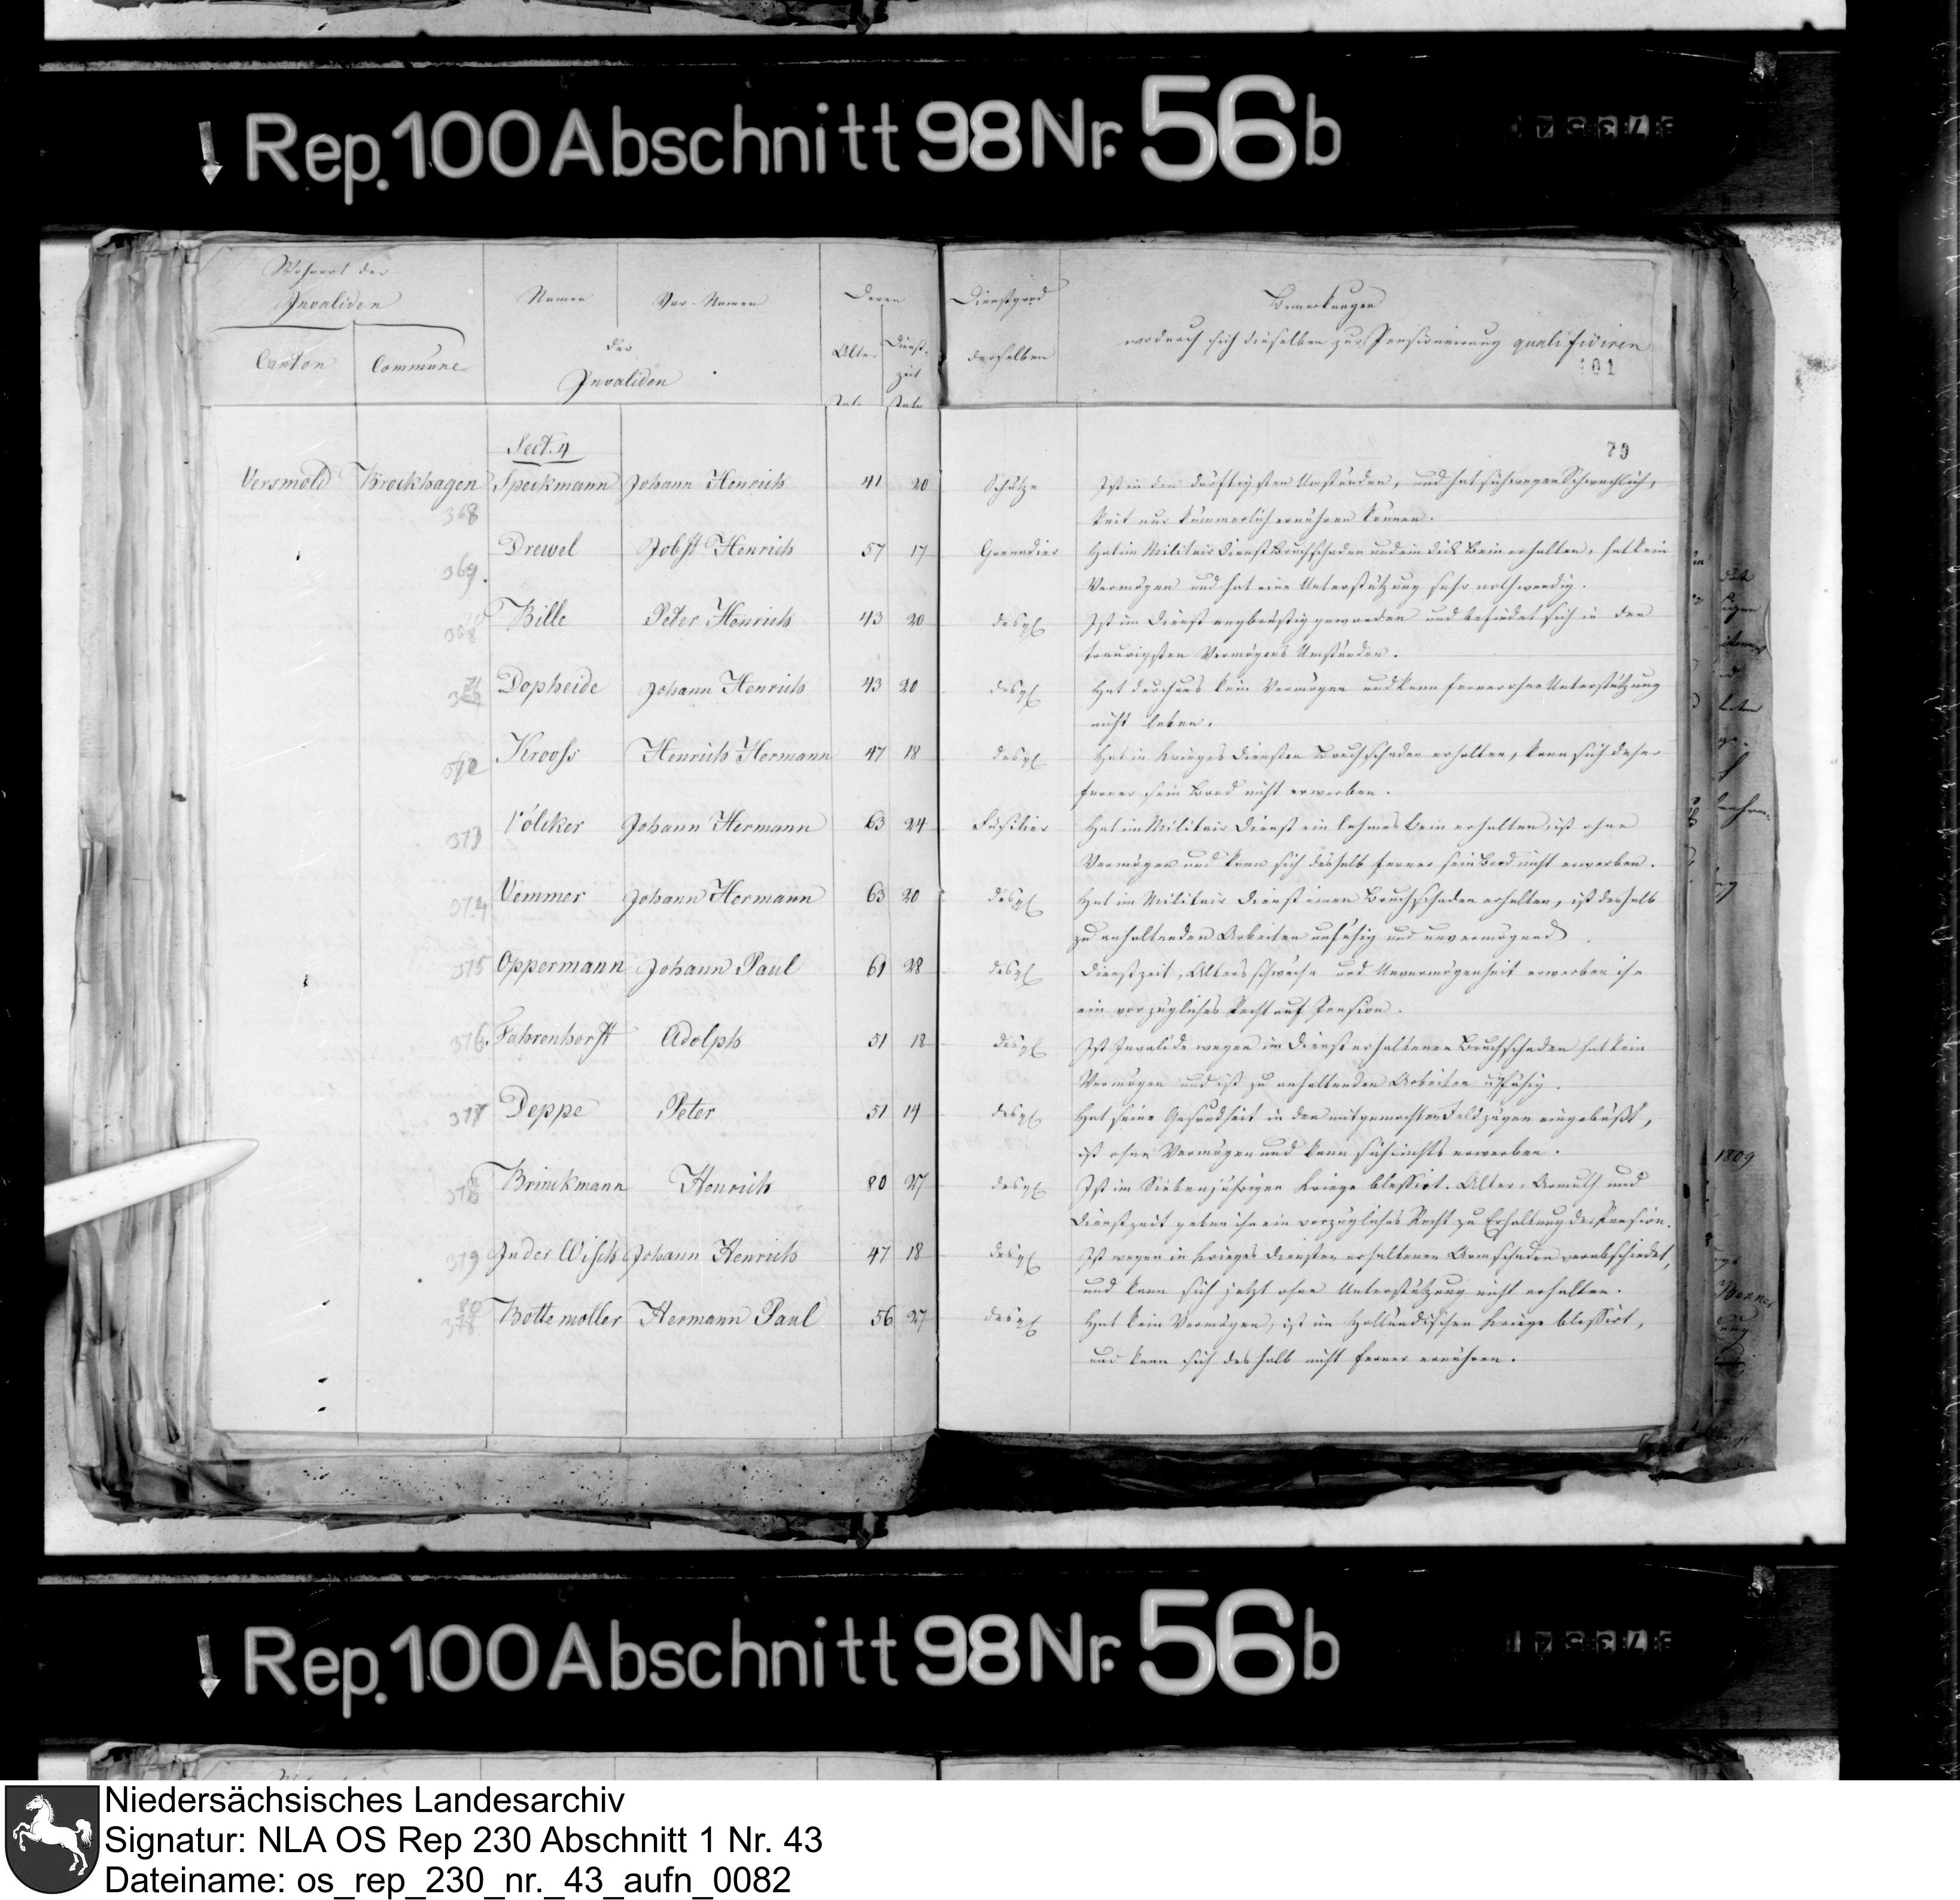 Rep. 100 Abschnitt 98 Nr. 56b
Wohnort der
Invaliden
Canton Commune
Namen Vor-Namen
der
Invaliden
Deren
Alter Dienst-
zeit
Jahr Jahr
Dienstgrad
derselben
Bemerkungen
wodurch sich dieselben zur Pensionirung qualificiren
101
79
Sect. 4
Versmold Brockhagen Speckmann Johann Henrich 41 20 Schütze Ist in den dürftigsten Umständen, und hat sich wegen Schwachlich,
keit nur kümmerlich ernähren können.
368
Drewel Jobst Henrich 57 17 Grenadier Hat im Militair Dienst Bruchschaden und ein dick Bein erhalten, hat kein
Vermögen und hat eine Unterstützung sehr nothwendig.
369.
Bille Peter Henrich 43 20 desgl Ist im Dienst engbrüstig geworden und befindet sich in den
traurigsten Vermögens Umständen.
368
Dopheide Johann Henrich 43 20 desgl Hat durchaus kein Vermögen und kann ferner ohne Unterstützung
nicht leben.
71
Krooss Henrich Hermann 47 18 desgl Hat in Krieges Diensten Bruchschaden erhalten, kann sich daher
ferner sein Brod nicht erwerben.
Völcker Johann Hermann 63 24 Füsilier Hat im Militair Dienst ein lahmes Bein erhalten, ist ohne
Vermögen und kann sich deshalb ferner sein Brod nicht erwerben.
373
Vemmer Johann Hermann 63 20 desgl Hat im Militair Dienst einen Bruchschaden erhalten, ist deshalb
zu anhaltenden Arbeiten unfähig und unvermögend.
374
Oppermann Johann Paul 61 28 desgl Dienstzeit, Altersschwäche und Unvermögenheit erwerben ihm
ein vorzügliches Recht auf Pension.
375
Fahrenhorst Adolph 51 18 desgl Ist Invalide wegen im Dienst erhaltenen Bruchschaden hat kein
Vermögen und ist zu anhaltenden Arbeiten unfähig.
376.
Deppe Peter 51 14 desgl Hat seine Gesundheit in den mitgemachten Feldzügen eingebüßt,
ist ohne Vermögen und kann sich nichts erwerben.
377
Brinckmann Henrich 80 27 desgl Ist im Siebenjährigen Kriege blessirt. Alter, Armuth und
Dienstzeit geben ihm ein vorzügliches Recht zu Erhaltung der Pension.
378
In der Wisch Johann Henrich 47 18 desgl Ist wegen in Krieges Diensten erhaltenen Armschaden verabschiedet,
und kann sich jetzt ohne Unterstützung nicht erhalten.
379
Bottemöller Hermann Paul 56 27 desgl Hat kein Vermögen, ist im Holländischen Kriege blessirt,
und kann sich deshalb nicht ferner ernähren.
80
378
1809
Rep. 100 Abschnitt 98 Nr. 56b
Niedersächsisches Landesarchiv
Signatur: NLA OS Rep 230 Abschnitt 1 Nr. 43
Dateiname: os_rep_230_nr._43_aufn_0082